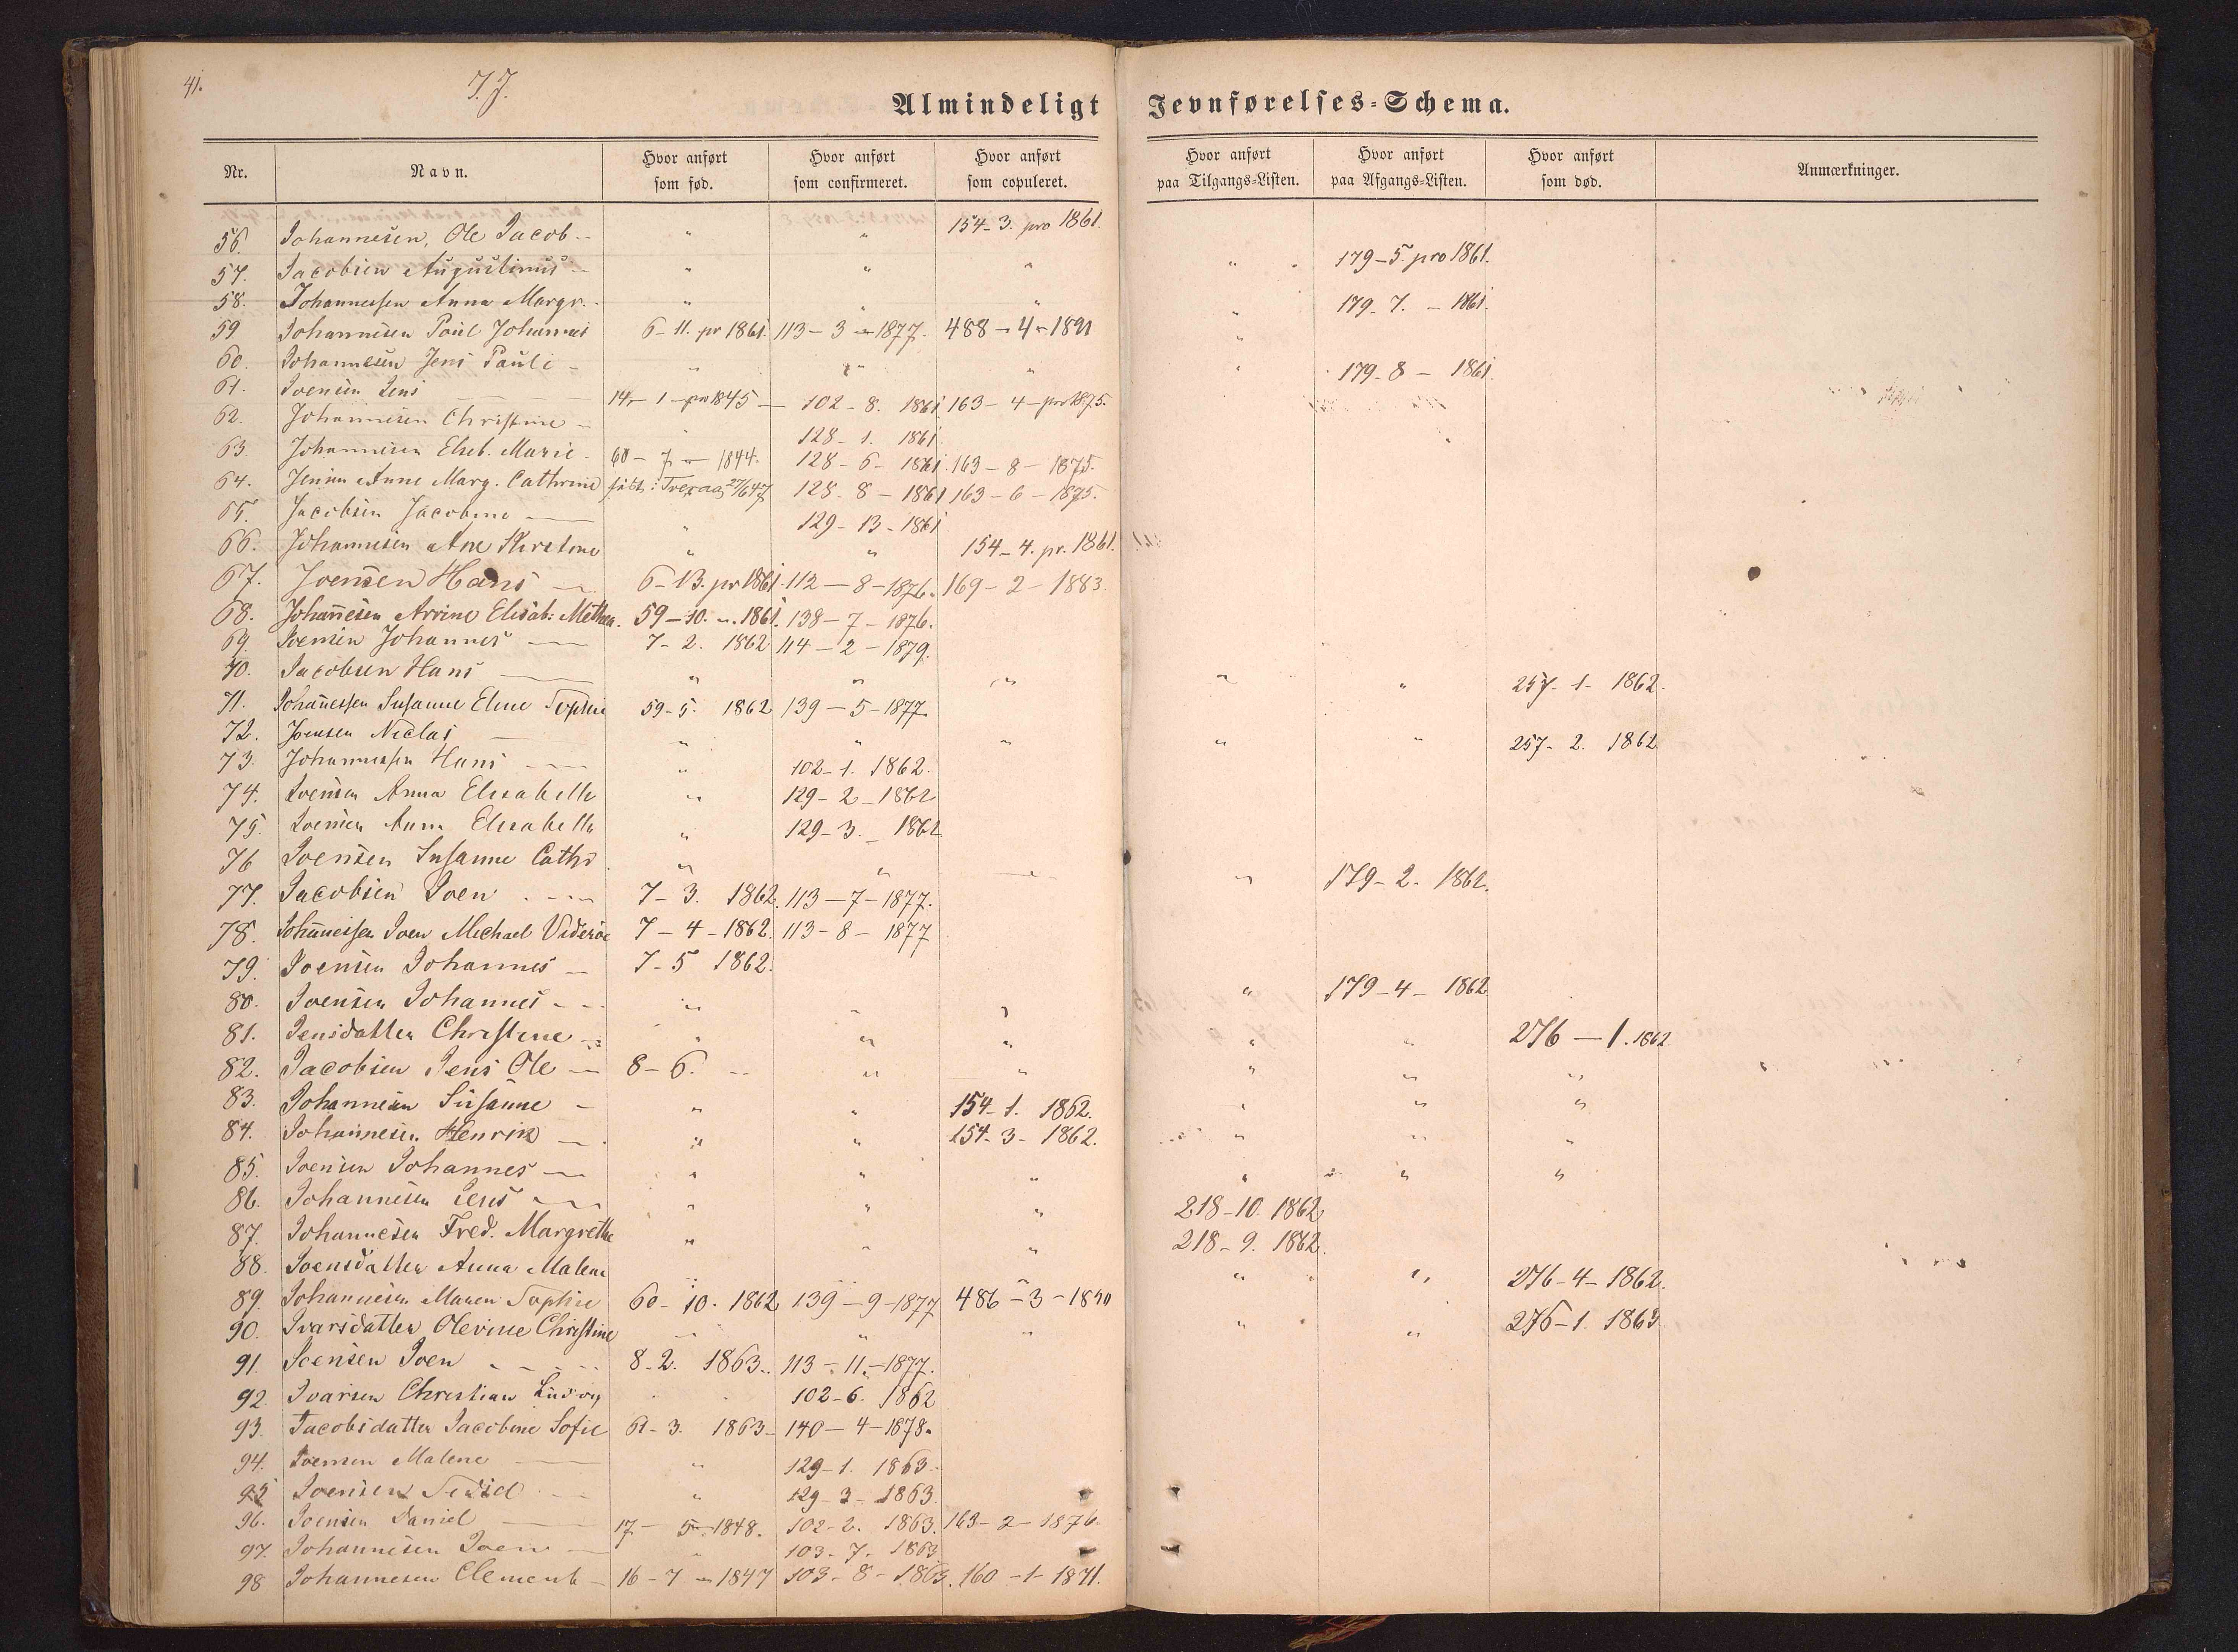 41.
J.J.
Almindeligt Jevnførelses-Schema.
Nr. Navn. Hvor anført som fød. Hvor anført som confirmeret. Hvor anført som copuleret. Hvor anført paa Tilgangs-Listen. Hvor anført paa Afgangs-Listen. Hvor anført som død. Anmærkninger.
56. Johannesen, Ole Jacob - " " 154-3. pro 1861.
57. Jacobsen Augustinus - " " " " 179-5. pro 1861.
58. Johannessen Anna Margr. - " " " " 179-7. - 1861.
59 Johannesen Poul Johannes 6-11. pr 1861. 113-3-"-1877. 488-4-"-1891 "
60. Johannesen Jens Pauli - " " " " 179-8- 1861.
61. Joensen Jens 14-1-pro 1845 - 102-8. 1861 163-4-pro 1875.
62. Johannesen Christine - " 128-1. 1861.
63. Johannesen Elseb. Marie - 60-7-"-1844. 128-6-1861. 163-8-1875.
64. Jensen Anne Marg. Cathrine født i 27/6 47 128-8-1861 163-6-1875.
65. Jacobsen Jacobine - 129-13-1861
66. Johannesen Ane Kirstine " " 154-4. pr. 1861.
67. Joensen Hans - 6-13. pr 1861. 112-8-1876. 169-2-1883.
68. Johan̄esen Arrine Elisab: Methea. 59-10. -"- 1861. 138-7-1876.
69. Joensen Johannes - 7-2. 1862 114-2-1879.
70. Jacobsen Hans - " " " " " 257-1-1862.
71. Johan̄essen Susanne Elene Sophie 59-5. 1862 139-5-1877
72. Joensen Niclas - " " " " " 257-2. 1862
73. Johannessen Hans - " 102-1. 1862.
74. Joensen Anna Elisabeth " 129-2-1862
75. Joensen Anna Elisabeth " 129-3. - 1862
76 Joensen Susanne Cathr. " " " " 179-2. 1862.
77. Jacobsen Joen - 7-3. 1862. 113-7-1877.
78. Johan̄essen Joen Michael Viderøe 7-4-1862. 113-8-1877
79. Joensen Johannes - 7-5 1862.
80. Joensen Johannes - " " " " 179-4-1862
81. Jensdatter Christine - " " " " " 276-1. 1862
82. Jacobsen Jens Ole - 8-6. " " " " " "
83. Johannesen Susanne - " " 154-1. 1862. " " "
84. Johannesen Henrik - " " 154-3-1862. " " "
85. Joensen Johannes - " " " " " "
86. Johannesen Jens - " " " 218-10. 1862
87. Johannesen Fred. Margrethe " " " 218-9. 1862.
88. Joensdatter Anna Malene " " " " " 276-4-1862.
89. Johannesen Maren Sophie 60-10. 1862 139-9-1877 486-3-1890
90. Ivarsdatter Olevine Christine " " " " " 276-1. 1863
91. Joensen Joen - 8-2. 1863. 113-11.-1877.
92. Ivarsen Christian Ludvig 102-6. 1862
93. Jacobsdatter Jacobine Sofie 61-3. 1863- 140-4-1878.
94. Joensen Malene - " 129-1. 1863.
95 Joensen - " 129-3-1863.
96. Joensen Daniel - 17-5-1848. 102-2. 1863. 163-2-1876.
97. Johannesen Joen - " 103-7. 1863
98 Johannesen Clement - 16-7-"-1847 103-8-1863. 160-1-1871.